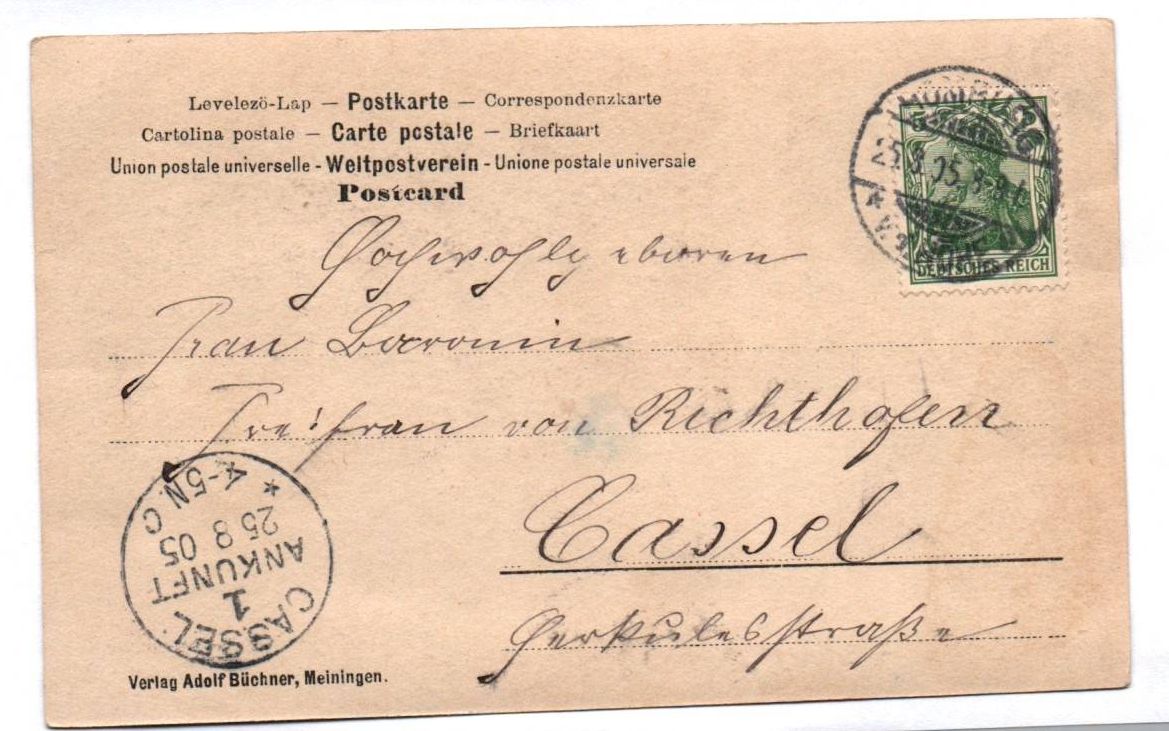 Levelezö-Lap — Postkarte — Correspondenzkarte
Cartolina postale — Carte postale — Briefkaart
Union postale universelle - Weltpostverein - Unione postale universale
Postcard
DEUTSCHES REICH
Hochwohlgeboren
Frau Baronin
Freifrau von Richthofen
Cassel
Herkulesstraße
* 4-5N C
25 8 05
ANKUNFT
1
CASSEL
Verlag Adolf Büchner, Meiningen.